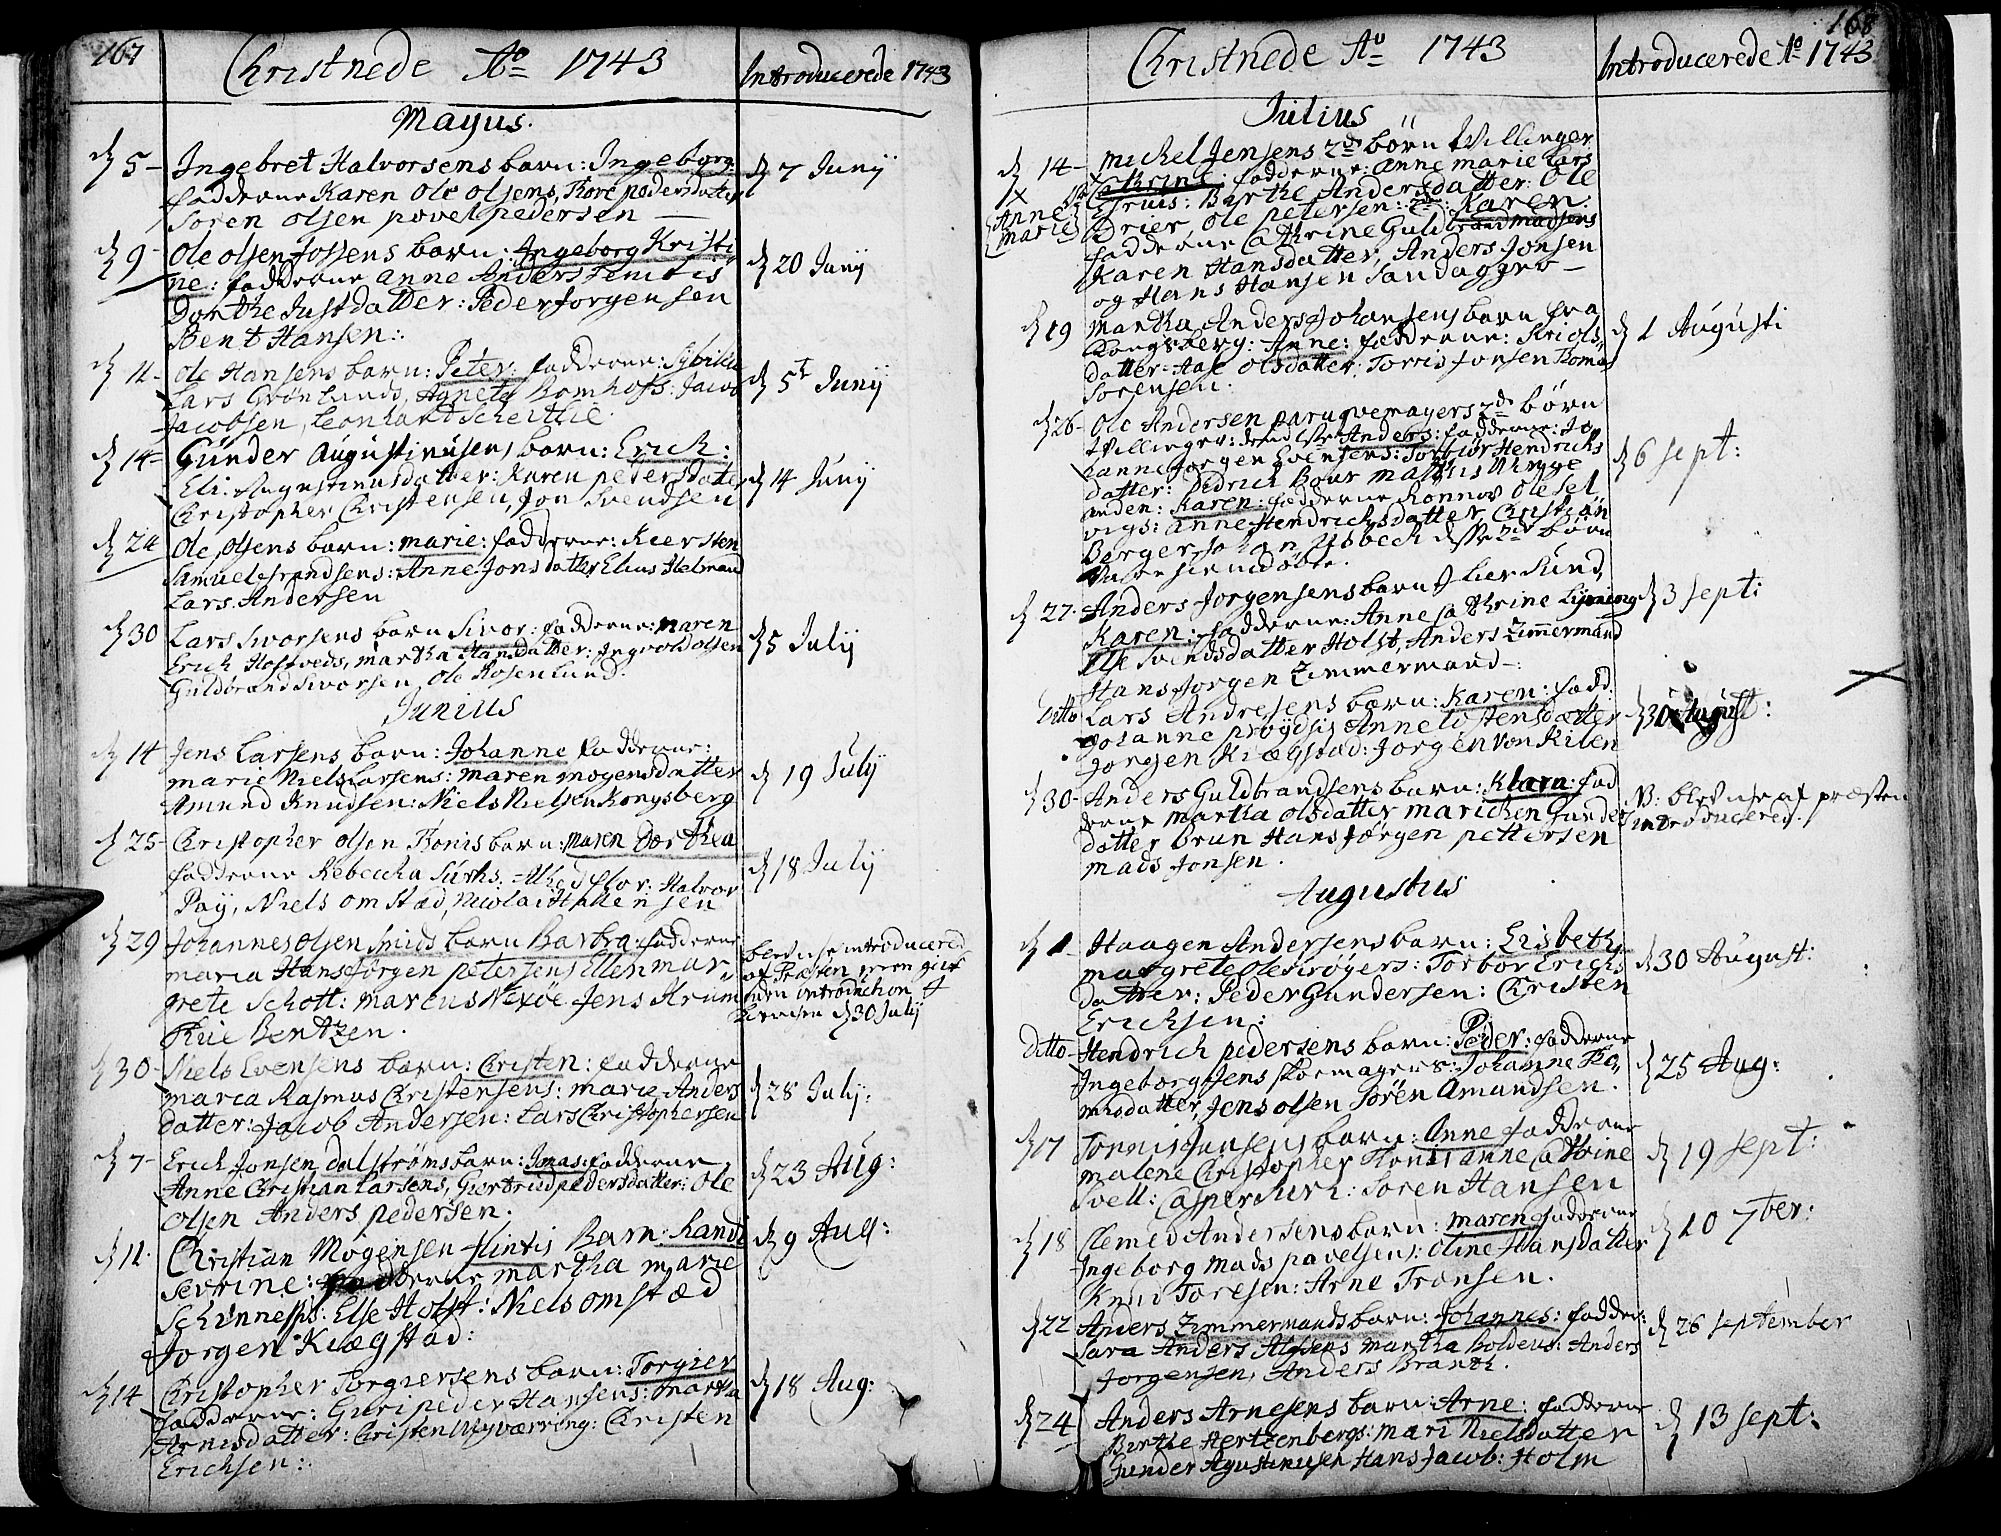 167
Christnede Ao 1743
Introducerede 1743
Mayus.
5- Ingebret Halvorsens barn: Ingeborg
fadderne Karen Ole olsens, Kore pedersdatter
Soren olsen povel pedersen —
7 Junij
9- Ole olsen Jossens barn: Ingeborg Kristi
ne: fadderne anne Anders
Dorthe Justdatter: Peder Jorgensen
Bent Hansen:
20 Junij
11- ole Hansens barn: Peter: fadderne:
Lars Grönlunds, Agneta Bomhofs: Jacob
Jacobsen, Leonhart Scheitlie
5t Junij
14- Gunder Augustinusens barn: Erick:
Eli Augustinusdatter: Karen petersdatter
Christopher Christensen, Jon Svendsen
14 Junij
24 Ole olsens barn: marie: fadderne: Kiersten
Samuel: Anne Jonsdatter Elius Helman
Lars Andersen
30 Lars Sivorsens barn Sivor: fadderne: maren
Erick Hostveds, martha Hansdatter: Ingvold olsen
Guldbrand Sivorsen, Ole Rosenlund.
5 Julij
Junius
14 Jens Larsens barn: Johanne fadderne:
marie Niels Larsens: maren mogensdatter
Amund Knudsen: Niels Nielsen Kongsberg
19 Julij
25- Christopher olsen Thonis barn: maren Dorthea
fadderne Rebeccha Kürhs: flor: Halvor
Pay, Niels omstæd, Nicolai Hallensen
18 Julij
29 Johannes olsen Smids barn Barbra: fadderne
maria Hans Jørgen petersens Ellen mar,
grete Schott: marcus Nexöe Jens Krüm
Bentzen.
blev introducered
af Præsten men
introduction
30 Julij
30- Niels Evensens barn: Christen: fadderne
marea Rasmus Christensens: marie Anders
datter: Jacob Andersen: Lars Christophersen
28 Julij:
7- Erick Jonsen Dalstrøms barn: Jonas: fadderne
Anne Christian Larsens, Giertrud pedersdatter: Ole
olsen Anders pedersen.
23 Aug:
11. Christian Mogensen Flintis Barn: Randi
Severine: fadderne martha marie
Else Holst: Niels omstæd
Jorgen Kiægstad:
9 Aug:
14 Christopher Torgiersens barn: Torgier
fadderne: Guri peder Hansens: marta
Arnisdatter: Christen Nyværring: Christen
Ericksen:
18 Aug:
168
Christnede Ao 1743
Introducerede Ao 1743
Julius
14- Michel Jensens 2de börn tvillinger
Anne marie
Cathrine: fadderne: anne marie Lars
Birthe Andersdatter: Ole
Drier, Ole petersen: 2de: Karen:
fadderne Cathrine Guldbrand madsens
Karen Hansdatter, Anders Jonsen
og Hans Hansen Sandaggro —
19 martha Anders Johansens barn fra
Kongsberg: Anne: fadderne: Kri ols,
datter: Aase olsdatter, Torris Jonsen Thomas
Sorensen.
1 Augusti
26- Ole Andersen paruqvemagers 2de börn
tvillinger: Anders: fadderne: Jo
hanne Jorgen Evensens: Torbiør Hendrichs
datter: Didrich Baur
anden: Karen: fadderne Ronnov Ole Sel
vigs: anne Hendrichsdatter, Christian
Borger, Johan disse 2de børn
vare hiemdøbte.
6 sept:
27- Anders Jorgensens barn
Karen: fadderne: Anne Cathrine
Else Svendsdatter Holst, Anders Zimmermand
Hans Jorgen Zimmermand —
3 sept:
Ditto Lars Andresens barn: Karen: fadd:
Johanne prøydsis Anne tostensdatter
Jorgen Kiægstad: Jorgen von Kilen
30 August:
30- Anders Guldbrandsens barn: Klara: fad
derne martha olsdatter marichen Gunder
datter Brun Hans Jørgen pettersen
mads Jonsen.
NB: blev af præsten
introducered.
Augustus
1- Haagen Andersens barn: Lisbeth:
margrete Ole Krøyers: Torbor Erichs
datter: Peder Gundersen: Christen
Ericksen:
30 August:
ditto- Hendrich pedersens barn: Peder: fadderne
Ingeborg Jens skoemagers: Johanne Tho,
masdatter, Jens olsen Sören Amundsen.
25 Aug:
17 Tonnis Jansens barn: Anne fadderne
malene Christopher Thonis anne Cathrine
Svell: Casper Kürh: Soren Hansen
19 sept:
18 Clemed Andersens barn: maren fadderne
Ingeborg Mads pavelsens: Oline Hansdatter
Knud Toresen: Arne Transen.
10 7ber:
22 Anders Zimmermands barn: Johannes: fadder:
Sara Anders Alfsens martha Boldevs: Anders
Jorgensen, Anders Branth.
26 september
24 Anders Arnesens barn: Arne: fadderne
Birthe Hertzenbergs: mari Nielsdatter
Gunder Agustinusen Hans Jacob: Holm
13 sept: